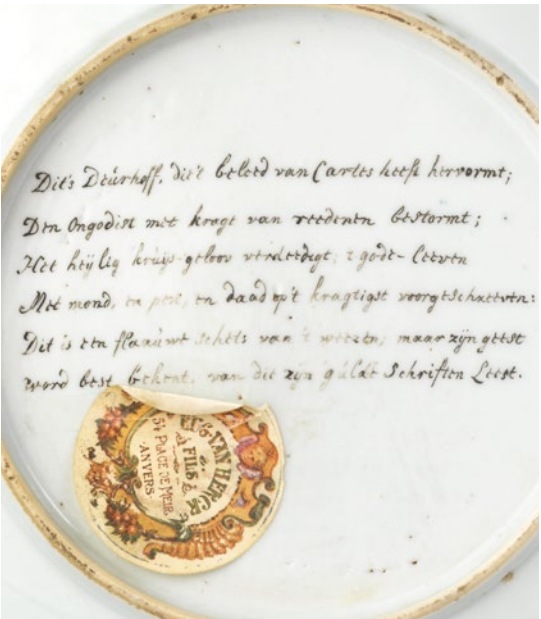 Dit's Deurhoff, die't beleed van Cartes heeft hervormt;
Den Ongodist met kragt van reedenen bestormt;
Het heÿlig kruÿs-geloov verdeedigt; t gods-leeven
Met mond, en pen, en daad op't kragtigst voorgeschreeven:
Dit is een flaauwe schets van 't weezen, maar zÿn geest
word best bekent, van die zÿn gulde Schriften Leest.
VAN HERCK
& FILS
37 PLACE DE MEIR.
ANVERS